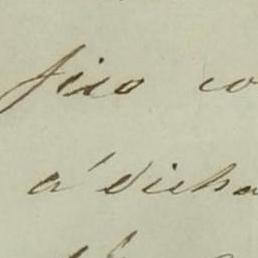 fixo co
a' dicha